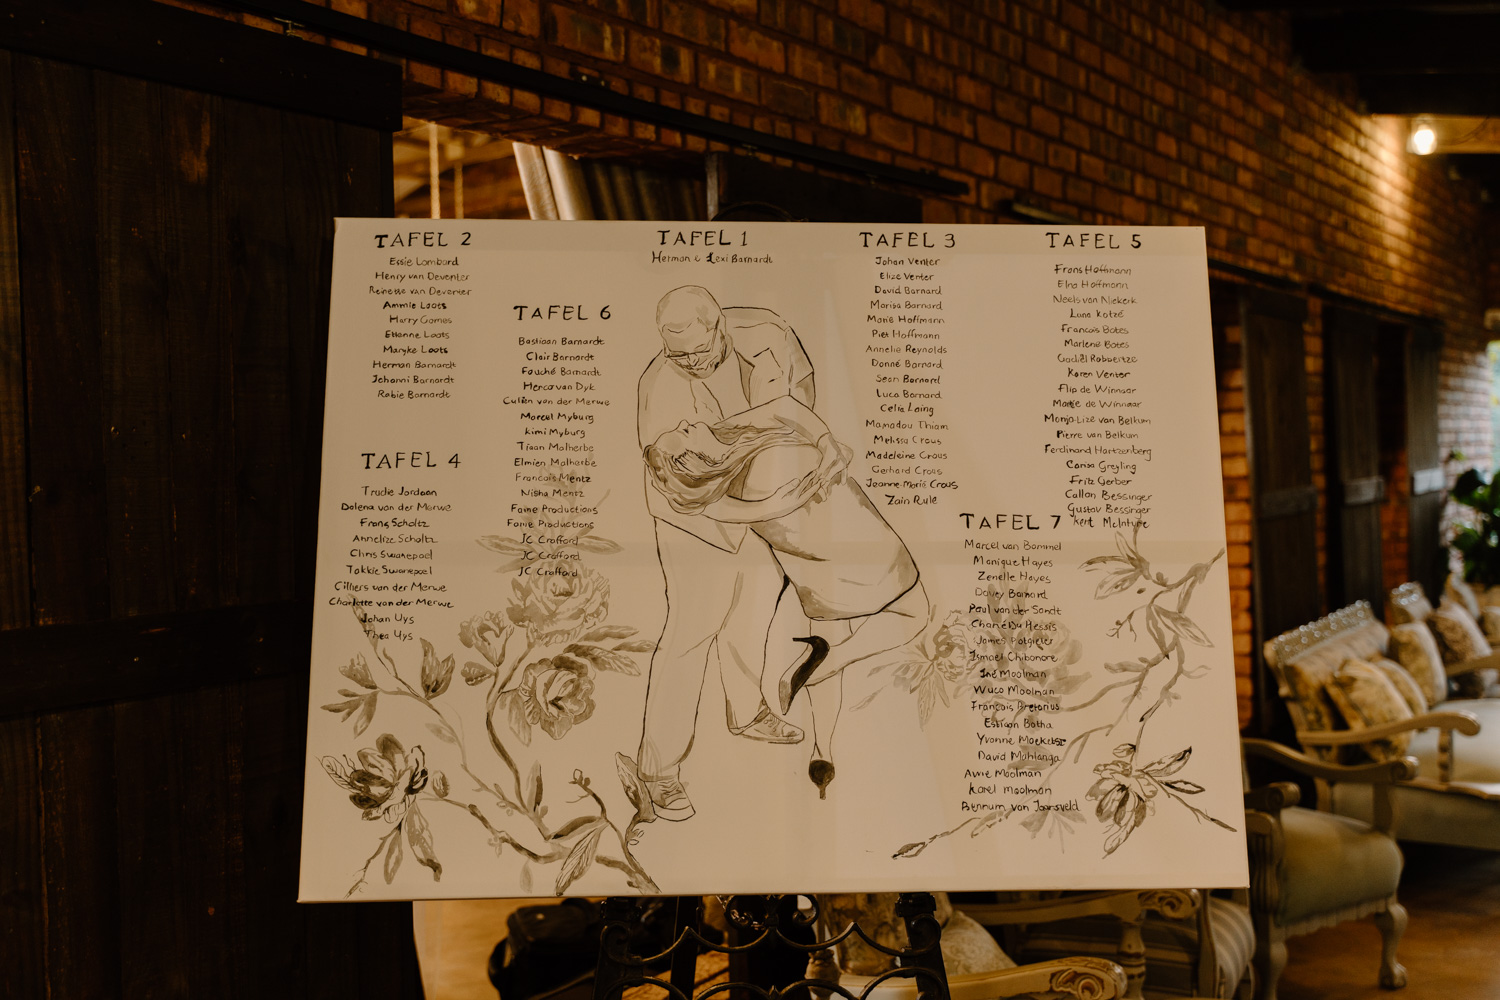 TAFEL 2
Essie Lombard
Henry van Deventer
Reinette van Deventer
Ammie Loots
Harry Gomes
Etienne Loots
Maryke Loots
Herman Barnardt
Johanni Barnardt
Robie Barnardt
TAFEL 4
Trudie Jordaan
Dalena van der Merwe
Frans Scholtz
Annelize Scholtz
Chris Swanepoel
Tokkie Swanepoel
Cilliers van der Merwe
Charlotte van der Merwe
Johan Uys
Thea Uys
TAFEL 6
Bastiaan Barnardt
Clair Barnardt
Fouché Barnardt
Herco van Dyk
Culien van der Merwe
Marcel Myburg
Kimi Myburg
Tiaan Malherbe
Elmien Malherbe
Francois Mentz
Nisha Mentz
Faine Productions
Faine Productions
JC Crafford
JC Crafford
JC Crafford
TAFEL 1
Herman & Lexi Barnardt
TAFEL 3
Johan Venter
Elize Venter
David Barnard
Marisa Barnard
Marie Hoffmann
Piet Hoffmann
Annelie Reynolds
Donné Barnard
Sean Barnard
Luca Barnard
Celia Laing
Mamadou Thiam
Melissa Crous
Madeleine Crous
Gerhard Crous
Jeanne-Marié Crous
Zain Rule
TAFEL 5
Frans Hoffmann
Elna Hoffmann
Neels van Niekerk
Luna Kotzé
Francois Botes
Marlene Botes
Robbertze
Karen Venter
Flip de Winnaar
Martie de Winnaar
Monja-Lize van Belkum
Pierre van Belkum
Ferdinand Hartzenberg
Carisa Greyling
Fritz Gerber
Callan Bessinger
Gustav Bessinger
Kent McIntyre
TAFEL 7
Marcel van Bommel
Monique Hayes
Zenelle Hayes
Davey Barnard
Paul van der Sandt
Chané Du Plessis
James Potgieter
Ismael Chibonore
Iné Moolman
Wuco Moolman
Francois Pretorius
Estiaan Botha
Yvonne Moeketsi
David Mahlangu
Avrie Moolman
Karel Moolman
Bennum van Jaarsveld